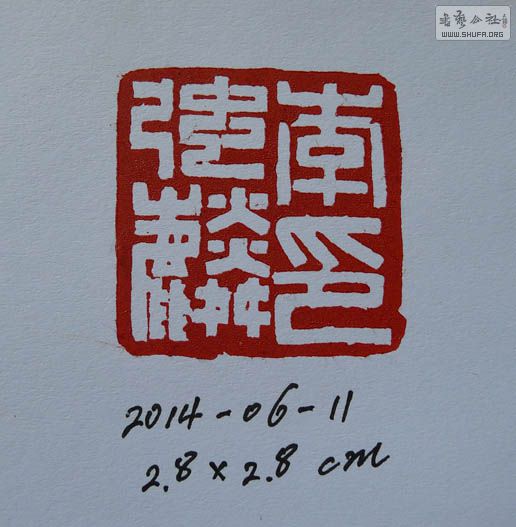 书艺公社
WWW.SHUFA.ORG
李印
麟
2014-06-11
2.8×2.8 cm